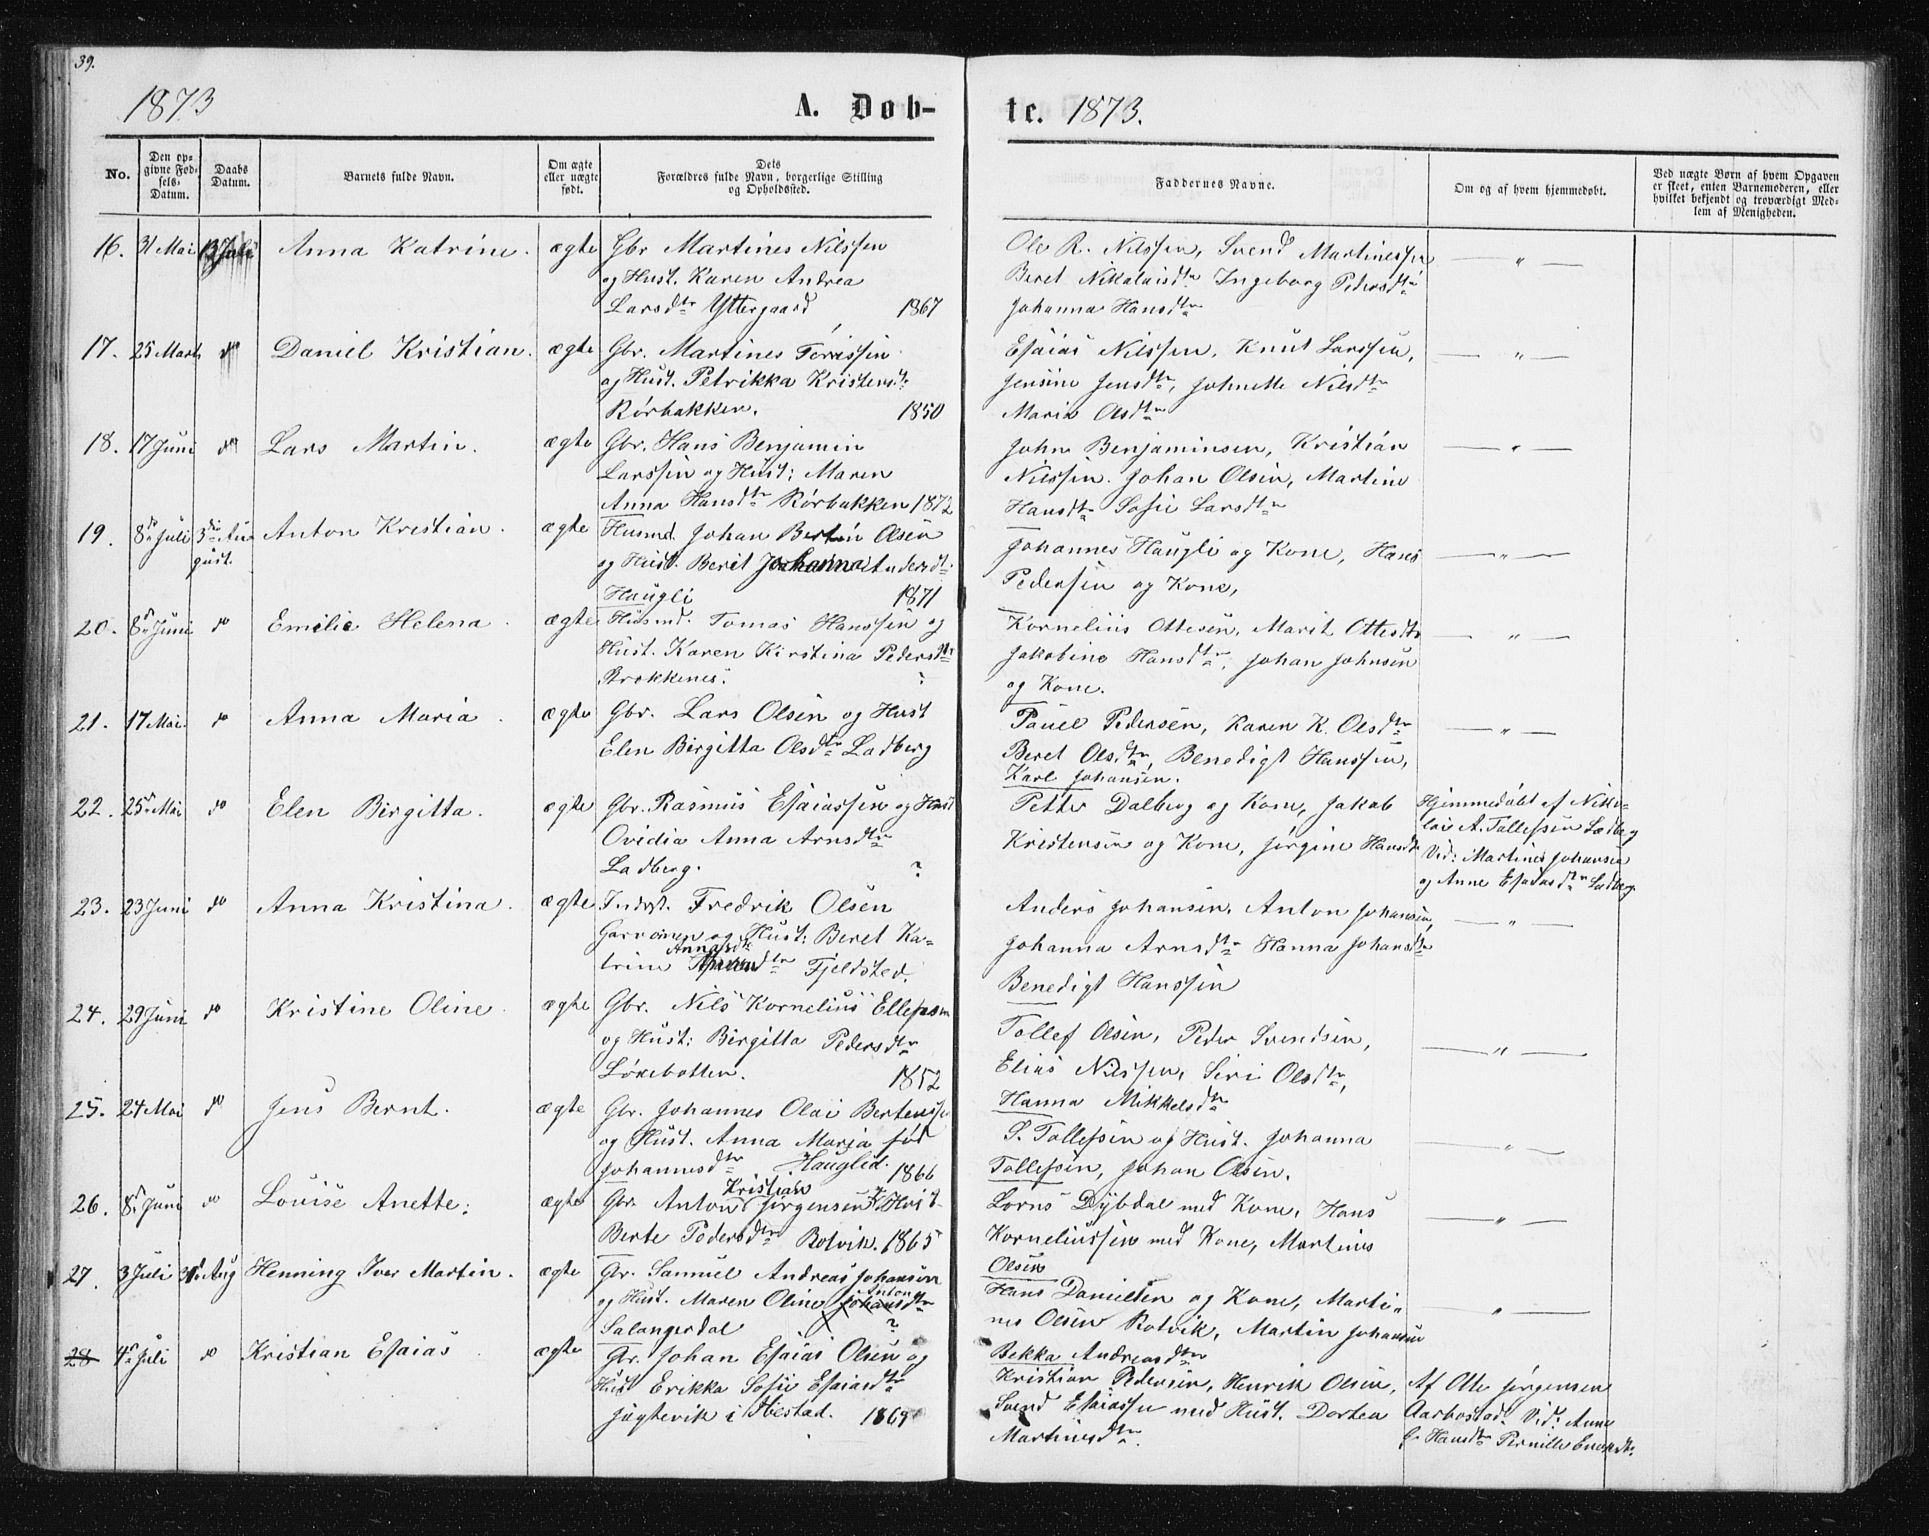 39.
1873
A. Døb-
te. 1873.
No.
Den op-
givne Fød-
sels-
Datum.
Daabs
Datum.
Barnets fulde Navn.
Om ægte
eller uægte
født.
Dets
Forældres fulde Navn, borgerlige Stilling
og Opholdssted.
Faddernes Navne.
Om og af hvem hjemmedøbt.
Ved uægte Børn af hvem Opgaven
er skeet, enten Barnemoderen, eller
hvilket bekjendt og troværdigt Med-
lem af Menigheden.
16. 31 Mai 13 Juli Anna Katrine. ægte Gbr Martines Nilssen
og Hust. Karen Andrea
Larsdtr Yttergaard 1867
Ole R. Nilssen, Svend Martinessen
Beret Nikolaisdtr Ingeborg Pedersdtr
Johanna Hansdtr
— " —
17. 25 Marts do Daniel Kristian. ægte Gbr. Martines Torrissen
og Hust. Petrikka Kristensdtr
Rørbakken. 1850
Esaias Nilssen, Knut Larssen,
Jensine Jensdtr, Johnette Nilsdtr
Maria Olsdtr
— " —
18. 17 Juni do Lars Martin. ægte Gbr. Hans Benjamin
Larssen og Hust: Maren
Anna Hansdtr Rørbakken 1872
John Benjaminsen, Kristian
Nilssen. Johan Olsen, Martine
Hansdtr Sofie Larsdtr
— " —
19. 8de Juli 3die Au-
gust. Anton Kristian. ægte Husmd. Johan Bertin Olsen
og Hust. Berit Johanna Andersdtr.
Haugli 1871
Johannes Haugli og Kone, Hans
Pedersen og Kone,
— " —
20. 8de Juni do Emilie Helena. ægte Husmd. Tomas Hanssen og
Hust. Karen Kirstina Pedersdtr
Brokkenes. :
Kornelius Ottesen, Marit Ottesdtr
Jakobine Hansdtr, Johan Johnsen
og Kone.
— " —
21. 17 Mai. do Anna Maria. ægte Gbr. Lars Olsen og Hust
Elen Birgitta Olsdtr Ladberg
Pauel Pedersen, Karen K. Olsdtr
Beret Olsdtr, Benedigt Hanssen,
Karl Johansen.
— " —
22. 25de Mai do Elen Birgitta. ægte Gbr. Rasmus Esaiassen og Hust
Ovidia Anna Arnsdtr
Ladberg. ?
Petter Dalberg og Kone, Jakob
Kristensen og Kone, Jørgine Hansdtr
Hjemmedøbt af Niko-
lai A. Tollefsen Ladberg
Vid: Martines Johansen
og Anne Esaiasdtr Ladberg.
23. 23 Juni do Anna Kristina. ægte Inderst. Fredrik Olsen
og Hust: Beret Ka-
Annasdtr
trine Fjeldsted.
Anders Johansen, Anton Johansen,
Johanna Arnsdtr Hanna Johansdtr
Benedigt Hanssen
— " —
24. 29 Juni do Kristine Oline. ægte Gbr. Nils Kornelius Ellefsen
og Hust: Birgitta Pedersdtr
Løksebotten. 1852
Tollef Olsen, Peder Svendsen,
Elias Nilssen, Siri Olsdtr,
Hanna Mikkelsdtr
— " —
25. 24 Mai do Jens Bernt. ægte Gbr. Johannes Olai Bertenssen
og Hust. Anna Marja født
Johannesdtr Hauglid. 1866
S. Tollefsen og Hust. Johanna
Tollefsen, Johan Olsen.
— " —
26. 8de Juni do Louise Anette. ægte Gbr. Anton Kristian Jørgensen & Hust
Berte Pedersdtr Rotvik. 1865
Lorns Dybdal med Kone, Hans
Korneliussen med Kone, Martines
Olsen
— " —
27. 3 Juli 31te Aug Henning Iver Martin. ægte Gbr. Samuel Andreas Johansen
og Hust. Maren Oline Johansdtr Anton
Salangsdal ?
Hans Danielsen og Kone, Marti-
nes Olsen Rotvik, Martin Johansen
Bekka Andreasdtr
— " —
28 4de Juli do Kristian Esaias. ægte Gbr. Johan Esaias Olsen og
Hust Erikka Sofie Esaiasdtr
Jøgtevik i Ibestad. 1869
Kristian Pedersen, Henrik Olsen,
Svend Esaiassen med Hust. Dortea
Martinesdtr.
Af Otte Jørgensen
Aarbostad. Vid. Anne
E. Hansdtr Pernille Enoksdtr.